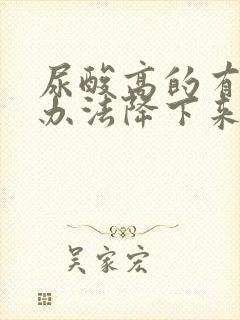 尿酸高的有
办法降下来
吴家宏